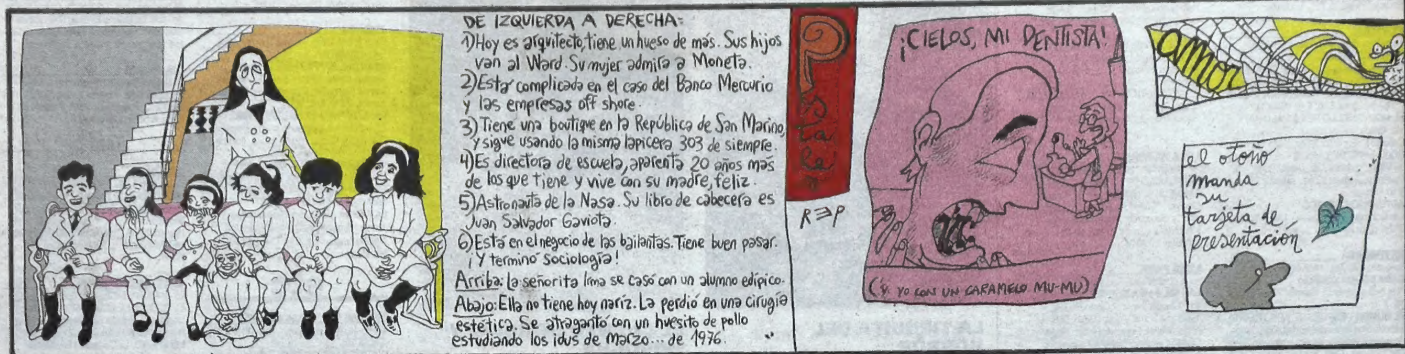 DE IZQUIERDA A DERECHA:
1) Hoy es arquitecto, tiene un hueso de más. Sus hijos
van al Ward. Su mujer admira a Moneta.
2) Está complicada en el caso del Banco Mercurio
y las empresas off shore.
3) Tiene una boutique en la República de San Marino,
y sigue usando la misma lapicera 303 de siempre.
4) Es directora de escuela, aparenta 20 años más
de los que tiene y vive con su madre, feliz.
5) Astronauta de la Nasa. Su libro de cabecera es
Juan Salvador Gaviota.
6) Está en el negocio de las bailantas. Tiene buen pasar.
¡Y terminó Sociología!
Arriba: la señorita Irma se casó con un alumno edípico.
Abajo: Ella no tiene hoy nariz. La perdió en una cirugía
estética. Se atragantó con un huesito de pollo
estudiando los idus de Marzo... de 1976.
Postales
REP
¡CIELOS, MI DENTISTA!
(Y YO CON UN CARAMELO MU-MU)
amor
el otoño
manda
su
tarjeta de
presentación